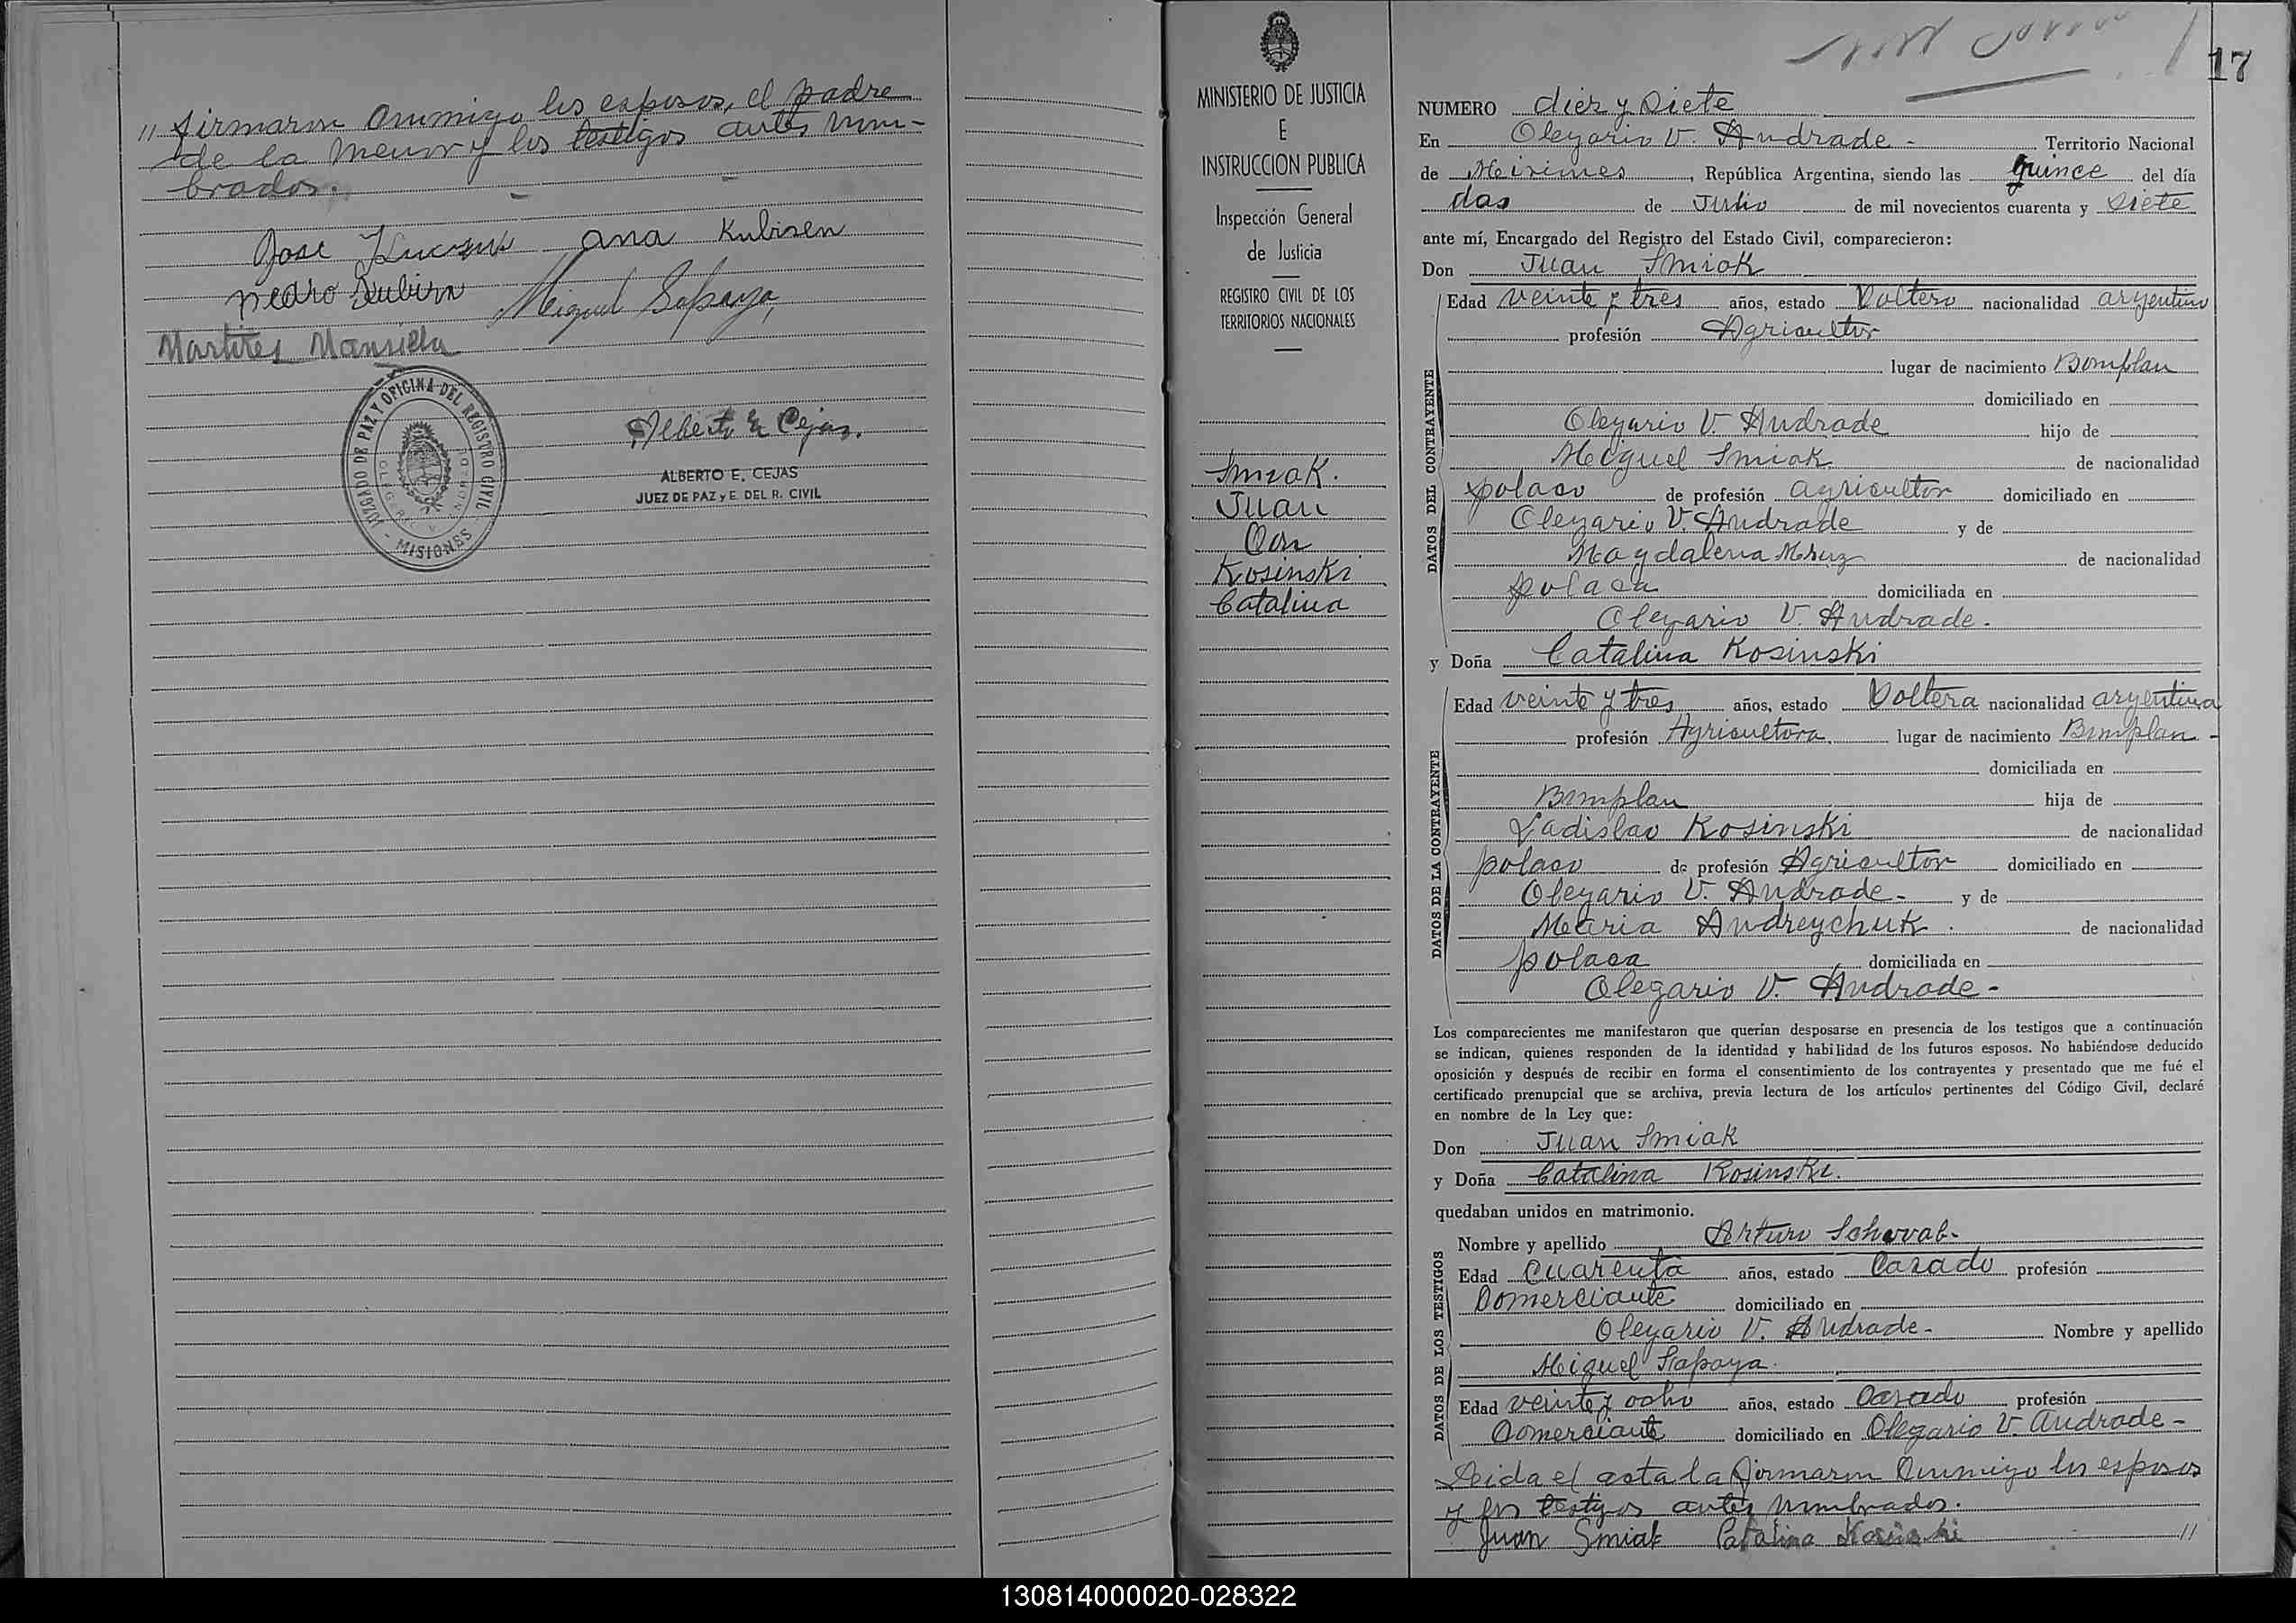 // firmaron conmigo los esposos, el padre
de la menor y los testigos antes nom-
brados.
Jose
Ana Kubisen
Pedro Kubisn
Miguel Sapaya
Martires Mansilla
JUZGADO DE PAZ Y OFICINA DEL REGISTRO CIVIL
- MISIONES -
Alberto E. Cejas.
ALBERTO E. CEJAS
JUEZ DE PAZ y E. DEL R. CIVIL
MINISTERIO DE JUSTICIA
E
INSTRUCCION PUBLICA
Inspección General
de Justicia
REGISTRO CIVIL DE LOS
TERRITORIOS NACIONALES
Smiak.
Juan
Con
Kosinski
Catalina
17
NUMERO diez y Siete
En Olegario V. Andrade - Territorio Nacional
de Misiones, República Argentina, siendo las quince del día
dos de Julio de mil novecientos cuarenta y Siete
ante mí, Encargado del Registro del Estado Civil, comparecieron:
Don Juan Smiak
DATOS DEL CONTRAYENTE
Edad veinte y tres años, estado Soltero nacionalidad argentino
profesión Agricultor
lugar de nacimiento Bomplan
domiciliado en
Olegario V. Andrade hijo de
Miguel Smiak de nacionalidad
polaco de profesión agricultor domiciliado en
Olegario V. Andrade y de
Magdalena Mruz de nacionalidad
polaca domiciliada en
Olegario V. Andrade.
y Doña Catalina Kosinski
DATOS DE LA CONTRAYENTE
Edad veinte y tres años, estado Soltera nacionalidad argentina
profesión Agricultora lugar de nacimiento Bomplan -
domiciliada en
Bomplan hija de
Ladislao Kosinski de nacionalidad
polaco de profesión Agricultor domiciliado en
Olegario V. Andrade - y de
Maria Andreychuk. de nacionalidad
polaca domiciliada en
Olegario V. Andrade -
Los comparecientes me manifestaron que querían desposarse en presencia de los testigos que a continuación
se indican, quienes responden de la identidad y habilidad de los futuros esposos. No habiéndose deducido
oposición y después de recibir en forma el consentimiento de los contrayentes y presentado que me fué el
certificado prenupcial que se archiva, previa lectura de los artículos pertinentes del Código Civil, declaré
en nombre de la Ley que:
Don Juan Smiak
y Doña Catalina Kosinski.
quedaban unidos en matrimonio.
DATOS DE LOS TESTIGOS
Nombre y apellido Arturo Schwab-
Edad Cuarenta años, estado Casado profesión
Comerciante domiciliado en
Olegario V. Andrade - Nombre y apellido
Miguel Sapaya.
Edad veinte y ocho años, estado Casado profesión
Comerciante domiciliado en Olegario V. Andrade -
Leida el acta la firmaron Conmigo los esposos
y los testigos antes nombrados.
Juan Smiak Catalina Kosinski //
130814000020-028322